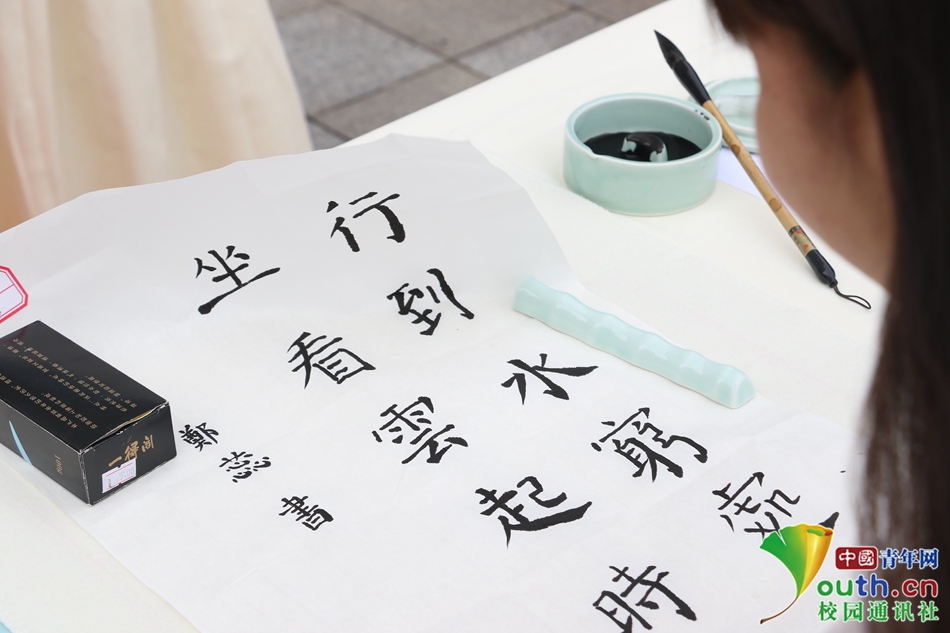 行到水窮處
坐看雲起時
鄭蕊書
一得阁
中國青年网
youth.cn
校园通讯社